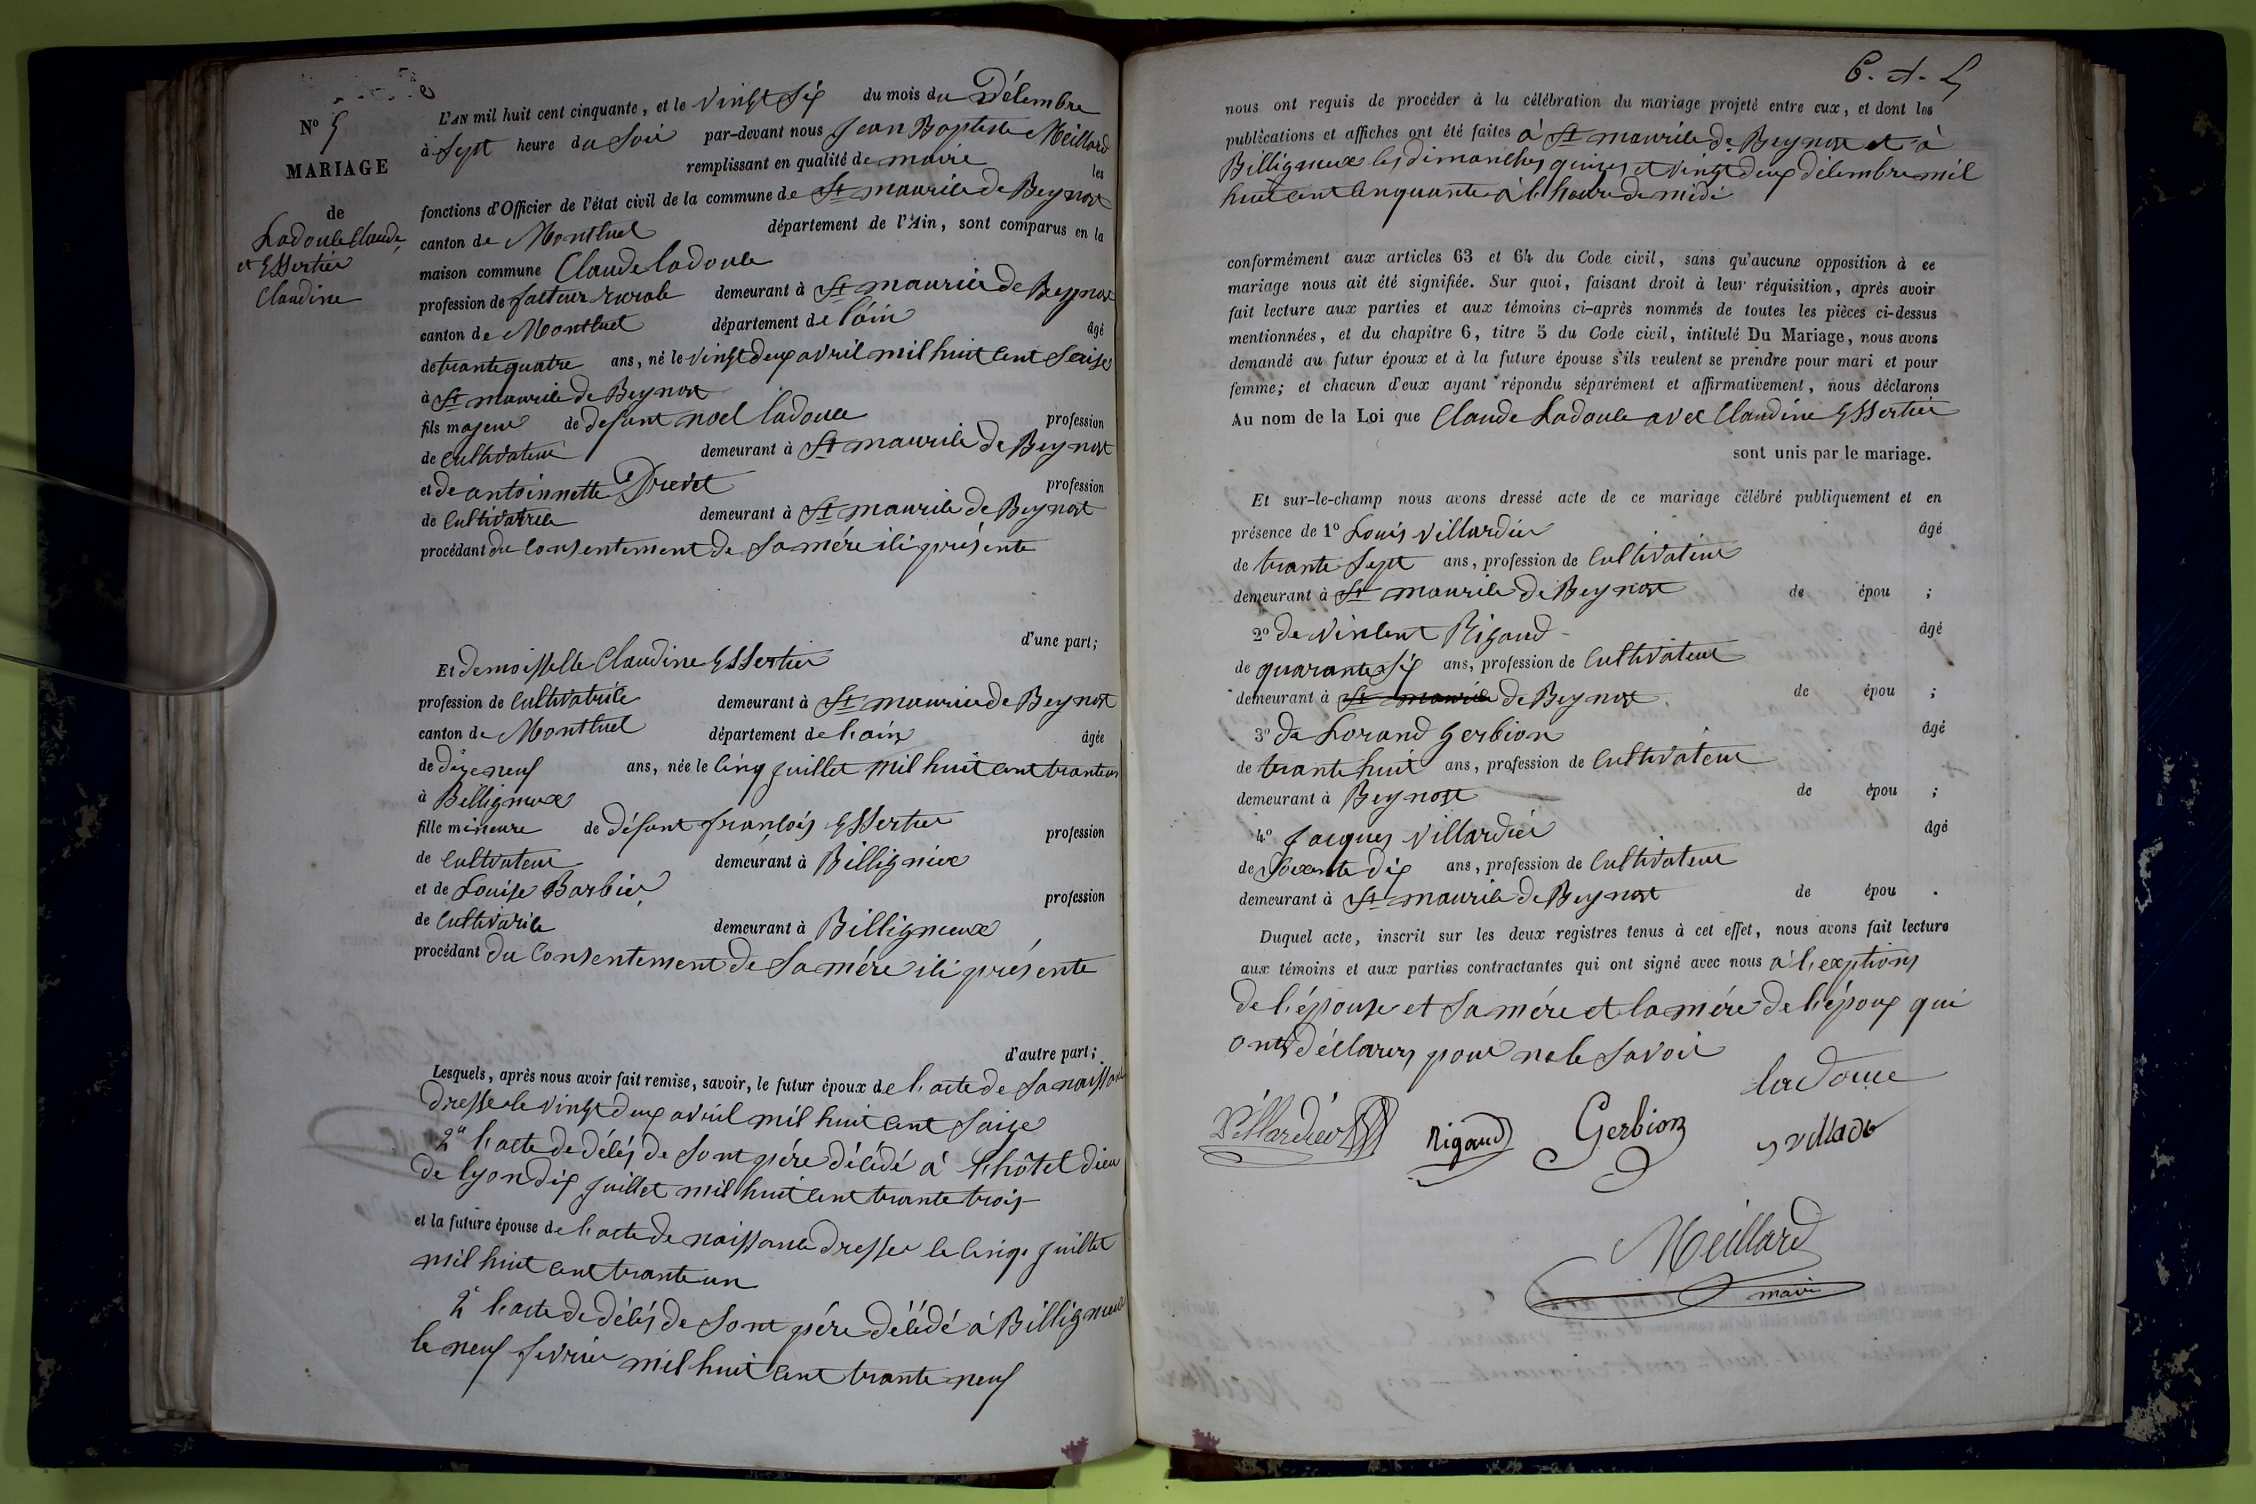 N° 5
MARIAGE
de
Ladouce Claude
et Essertier
Claudine
L'AN mil huit cent cinquante, et le vingt six du mois du Décembre
à sept heure du soir par-devant nous Jean Baptiste Meillard
remplissant en qualité de maire les
fonctions d'Officier de l'état civil de la commune de St maurice de Beynost
canton de Montluel département de l'Ain, sont comparus en la
maison commune Claude ladouce
profession de facteur rurale demeurant à St maurice de Beynost
canton de Montluel département de l'ain âgé
de trante quatre ans, né le vingt deux avril mil huit cent seize
à St maurice de Beynost
fils majeur de défunt noel ladouce profession
de cultivateur demeurant à St maurice de Beynost
et de antoinnette Drevet profession
de cultivatrice demeurant à St maurice de Beynost
procédant du consentement de sa mére ici présente
d'une part;
Et demoisselle Claudine Essertier
profession de cultivatrice demeurant à St maurice de Beynost
canton de Montluel département de l'ain âgée
de dize neuf ans, née le cinq juillet mil huit cent trante un
à Billigneux
fille mineure de défunt françois Essertier profession
de cultivateur demeurant à Billignieux
et de Louise Barbier profession
de cultivarice demeurant à Billigneux
procédant du consentement de sa mére ici présente
d'autre part;
Lesquels, après nous avoir fait remise, savoir, le futur époux de l'acte de sa naissance
dresser le vingt deux avril mil huit cent saize
2° l'acte de décés de sont pére décédé à l'hôtel dieu
de lyon dix juillet mil huit cent trante trois
et la future épouse de l'acte de naissance dresser le cinq juillet
mil huit cent trante un
2° l'acte de décés de sont pére décédé à Billigneux
le neuf fevrier mil huit cent trante neuf
6. A. 5
nous ont requis de procéder à la célébration du mariage projeté entre eux, et dont les
publications et affiches ont été faites à St maurice de Beynost et à
Billigneux les dimanches quinze et vingt deux décembre mil
huit cent cinquante à l'heure de midi
conformément aux articles 63 et 64 du Code civil, sans qu'aucune opposition à ce
mariage nous ait été signifiée. Sur quoi, faisant droit à leur réquisition, après avoir
fait lecture aux parties et aux témoins ci-après nommés de toutes les pièces ci-dessus
mentionnées, et du chapitre 6, titre 5 du Code civil, intitulé Du Mariage, nous avons
demandé au futur époux et à la future épouse s'ils veulent se prendre pour mari et pour
femme; et chacun d'eux ayant répondu séparément et affirmativement, nous déclarons
Au nom de la Loi que Claude Ladouce avec Claudine Essertier
sont unis par le mariage.
Et sur-le-champ nous avons dressé acte de ce mariage célébré publiquement et en
présence de 1° Louis villardier âgé
de trante sept ans, profession de cultivateur
demeurant à St maurice de Beynost de épou ;
2° de vincent Rigaud âgé
de quarante six ans, profession de cultivateur
demeurant à St maurice de Beynost de épou ;
3° de Lorand Gerbion âgé
de trante huit ans, profession de cultivateur
demeurant à Beynost de épou ;
4° Jacques villardier âgé
de soixante dix ans, profession de cultivateur
demeurant à St maurice de Beynost de épou .
Duquel acte, inscrit sur les deux registres tenus à cet effet, nous avons fait lecture
aux témoins et aux parties contractantes qui ont signé avec nous à l'exptions
de l'épouse et sa mére et la mére de l'époux qui
onts déclarers pour ne le savoir
ladouce
Villardier Rigaud Gerbion
Meillard
maire